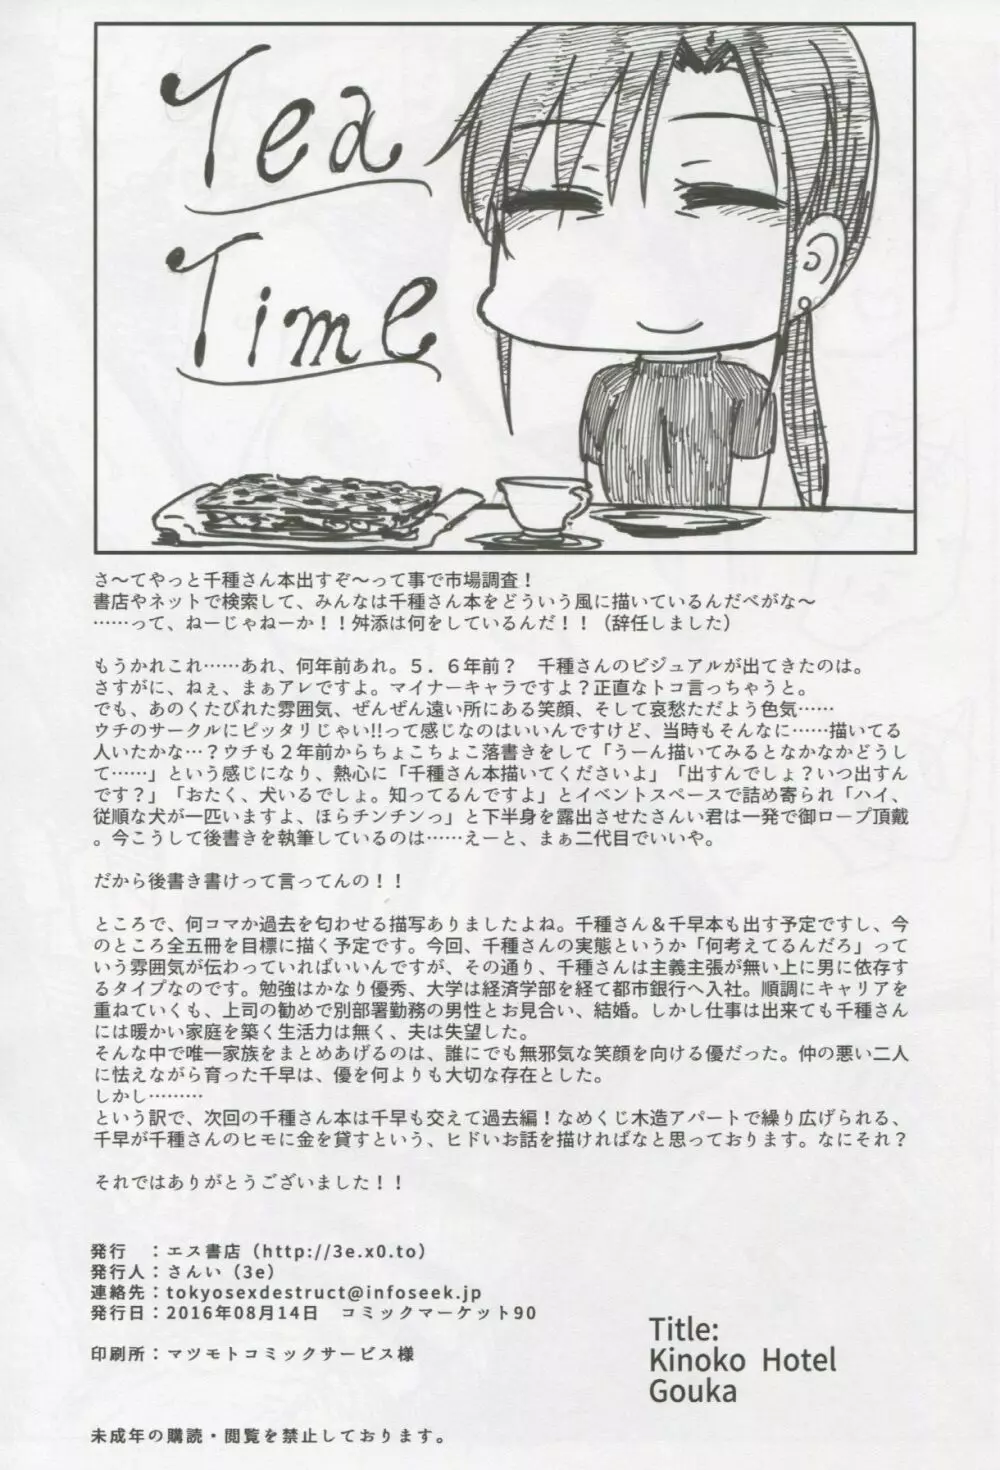 Tea
Time
さ～てやっと千種さん本出すぞ～って事で市場調査！
書店やネットで検索して、みんなは千種さん本をどういう風に描いているんだべがな～
……って、ねーじゃねーか！！舛添は何をしているんだ！！（辞任しました）
もうかれこれ……あれ、何年前あれ。５．６年前？　千種さんのビジュアルが出てきたのは。
さすがに、ねぇ、まぁアレですよ。マイナーキャラですよ？正直なトコ言っちゃうと。
でも、あのくたびれた雰囲気、ぜんぜん遠い所にある笑顔、そして哀愁ただよう色気……
ウチのサークルにピッタリじゃい!!って感じなのはいいんですけど、当時もそんなに……描いてる
人いたかな…？ウチも２年前からちょこちょこ落書きをして「うーん描いてみるとなかなかどうし
て……」という感じになり、熱心に「千種さん本描いてくださいよ」「出すんでしょ？いつ出すん
です？」「おたく、犬いるでしょ。知ってるんですよ」とイベントスペースで詰め寄られ「ハイ、
従順な犬が一匹いますよ、ほらチンチンっ」と下半身を露出させたさんい君は一発で御ロープ頂戴
。今こうして後書きを執筆しているのは……えーと、まぁ二代目でいいや。
だから後書き書けって言ってんの！！
ところで、何コマか過去を匂わせる描写ありましたよね。千種さん＆千早本も出す予定ですし、今
のところ全五冊を目標に描く予定です。今回、千種さんの実態というか「何考えてるんだろ」って
いう雰囲気が伝わっていればいいんですが、その通り、千種さんは主義主張が無い上に男に依存す
るタイプなのです。勉強はかなり優秀、大学は経済学部を経て都市銀行へ入社。順調にキャリアを
重ねていくも、上司の勧めで別部署勤務の男性とお見合い、結婚。しかし仕事は出来ても千種さん
には暖かい家庭を築く生活力は無く、夫は失望した。
そんな中で唯一家族をまとめあげるのは、誰にでも無邪気な笑顔を向ける優だった。仲の悪い二人
に怯えながら育った千早は、優を何よりも大切な存在とした。
しかし………
という訳で、次回の千種さん本は千早も交えて過去編！なめくじ木造アパートで繰り広げられる、
千早が千種さんのヒモに金を貸すという、ヒドいお話を描ければなと思っております。なにそれ？
それではありがとうございました！！
発行　：エス書店（http://3e.x0.to）
発行人：さんい（3e）
連絡先：tokyosexdestruct@infoseek.jp
発行日：2016年08月14日　コミックマーケット90
印刷所：マツモトコミックサービス様
Title:
Kinoko Hotel
Gouka
未成年の購読・閲覧を禁止しております。